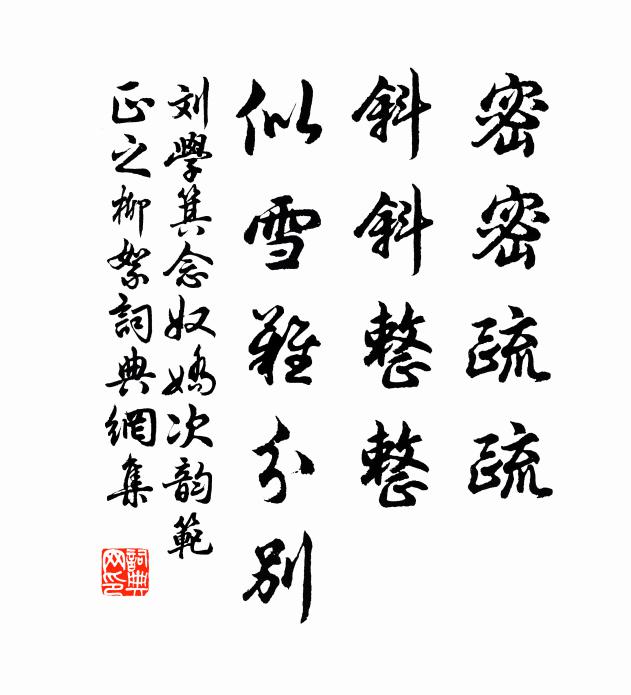 密密疏疏
斜斜整整
似雪难分别
刘學箕念奴嬌次韵範
正之柳絮詞典網集
詞典
网印